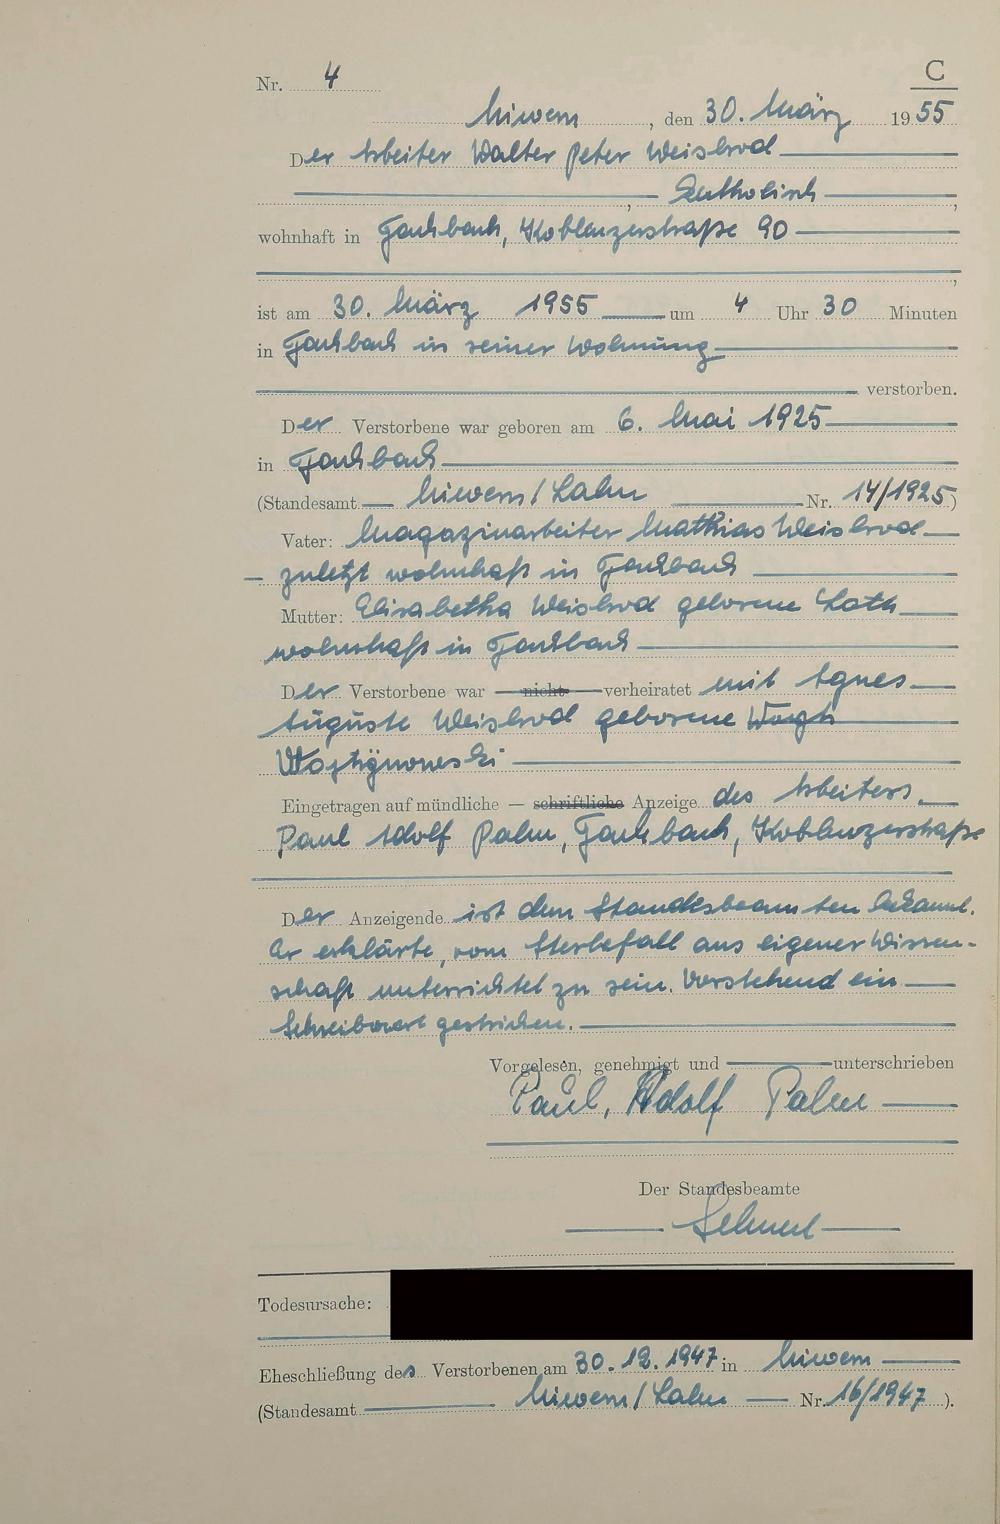 C
Nr. 4
Miwem, den 30. März 1955
Der Arbeiter Walter Peter Weisbrod
, Katholisch,
wohnhaft in Fachbach, Koblenzerstraße 90
,
ist am 30. März 1955 um 4 Uhr 30 Minuten
in Fachbach in seiner Wohnung
verstorben.
Der Verstorbene war geboren am 6. Mai 1925
in Fachbach
(Standesamt Miwem/Lahn Nr. 14/1925)
Vater: Magazinarbeiter Matthias Weisbrod
– zuletzt wohnhaft in Fachbach
Mutter: Elisabetha Weisbrod geborene
wohnhaft in Fachbach
Der Verstorbene war nicht verheiratet mit Agnes
Auguste Weisbrod geborene
Eingetragen auf mündliche — schriftliche Anzeige des Arbeiters
Paul Adolf Palm, Fachbach, Koblenzerstraße
Der Anzeigende ist dem Standesbeamten bekannt.
Er erklärte, vom Sterbefall aus eigener Wissen-
schaft unterrichtet zu sein. Vorstehend ein
Schreibwort gestrichen.
Vorgelesen, genehmigt und unterschrieben
Paul, Adolf Palm
Der Standesbeamte
Todesursache:
Eheschließung des Verstorbenen am 30.12.1947 in Miwem
(Standesamt Miwem/Lahn — Nr. 16/1947).